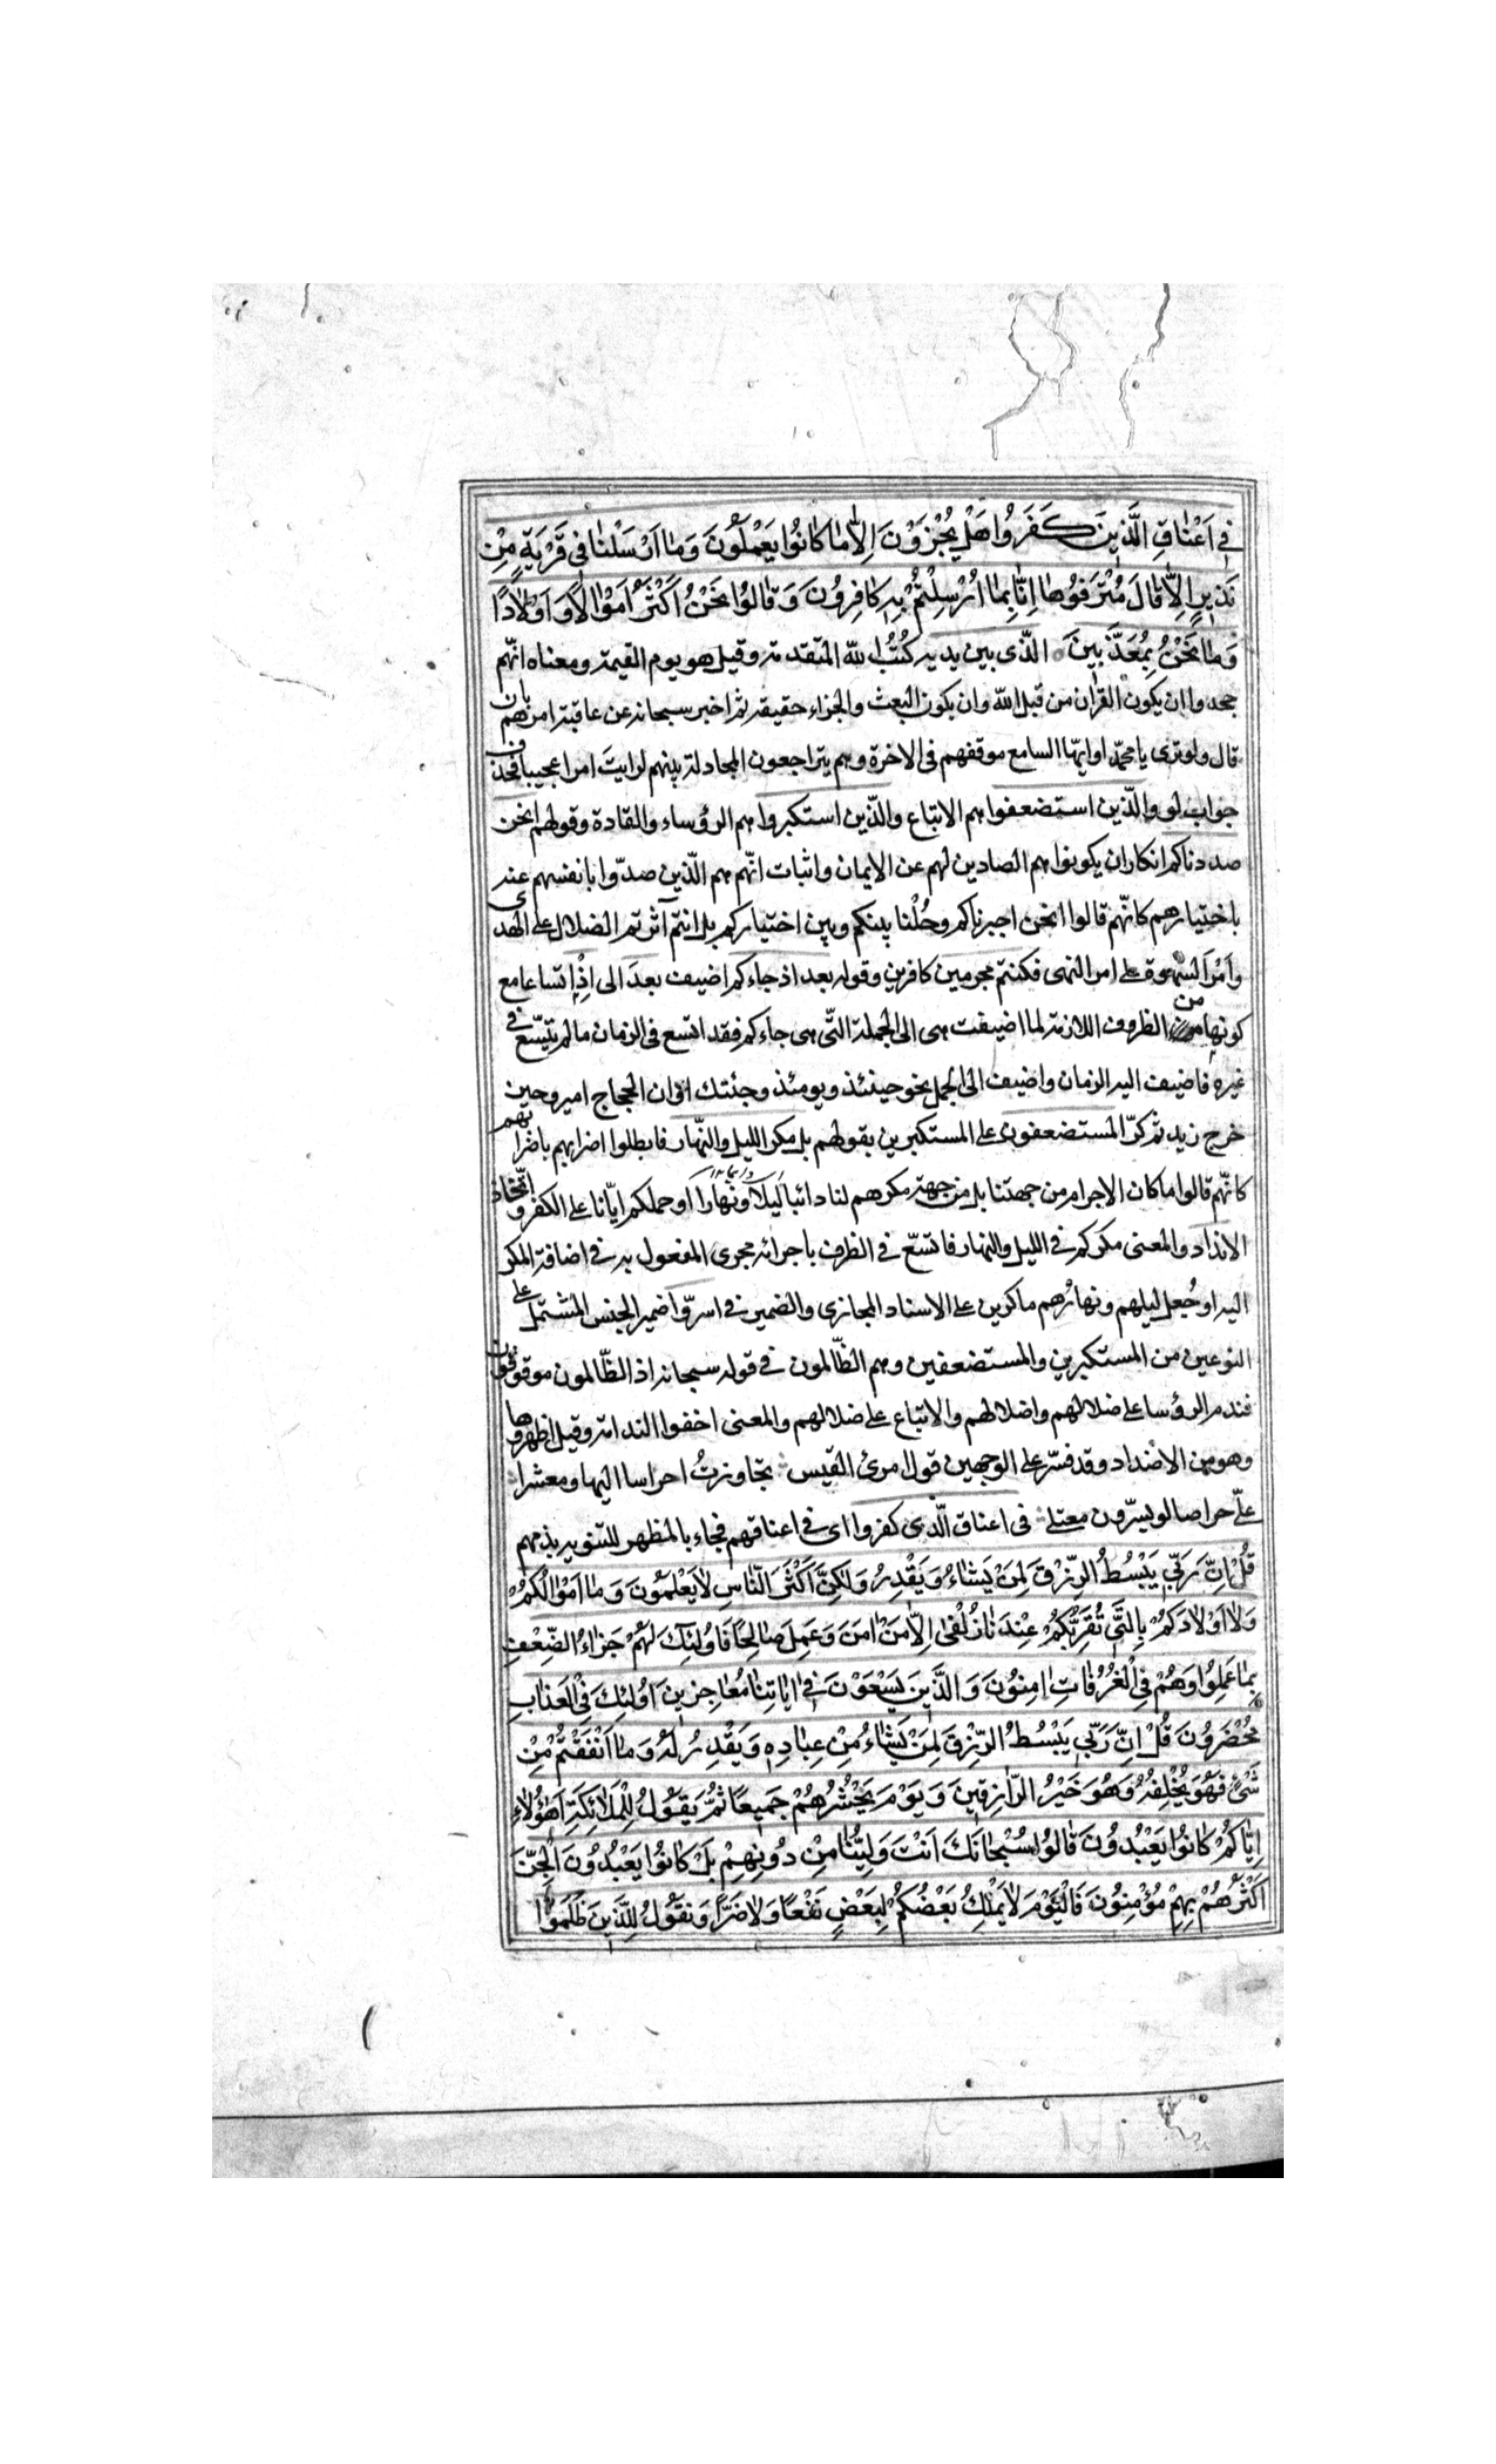 فِي اَعْنٰاقِ الَّذِينَ كَفَرُوا هَلْ يُجْزَوْنَ اِلّٰا مٰا كٰانُوا يَعْمَلُونَ وَمٰا اَرْسَلْنٰا فِي قَرْيَةٍ مِنْ
نَذِيرٍ اِلّٰا قٰالَ مُتْرَفُوهٰا اِنّٰا بِمٰا اُرْسِلْتُمْ بِهِ كٰافِرُونَ وَ قٰالُوا نَحْنُ اَكْثَرُ اَمْوٰالًا وَ اَوْلٰادًا
وَمٰا نَحْنُ بِمُعَذَّبِينَ الّذى بين يديه كُتُبُ الله المتقدمة وقيل هو يوم القيمة ومعناه انّهم
جحدوا ان يكون القرآن من قبل الله وان يكون البعث والجزاء حقيقة ثم اخبر سبحانه عن عاقبة امرهم بان
قال ولو ترى يا محمّد او ايها السامع موقفهم فى الاخرة وهم يتراجعون المجادلة بينهم لرايت امرا عجيبا فحذف
جواب لو والّذين استضعفوا هم الاتباع والّذين استكبروا هم الرؤساء والقادة وقولهم انحن
صددناكم انكار ان يكونوا هم الصادين لهم عن الايمان واثبات انّهم هم الّذين صدّوا بانفسهم عنه
باختيارهم كانّهم قالوا انحن اجبرناكم وحُلْنا بينكم وبين اختياركم بل انتم آثرتم الضلال على الهدى
وأمْرَ الشهوة على امر النهى فكنتم مجرمين كافرين وقوله بعد اذ جاءكم اضيف بعدَ الى اِذْ اتساعا مع
كونها من الظروف اللازمة لما اضيفت هى الى الجملة الّتى هى جاءكم فقد اتّسع فى الزمان ما لم يتّسع فى
غيره فاضيف اليه الزمان واضيف الى الجمل نحو حينئذ ويومئذ وجئتك اوان الحجاج امير وحين
خرج زيد ثم كرّ المستضعفون على المستكبرين بقولهم بل مكر الليل والنّهار فابطلوا اضرابهم باضرابهم
كانّهم قالوا ما كان الاجرام من جهتنا بل من جهة مكرهم لنا دائبا ليلًا ونهارا او حملكم ايّانا على الكفر واتّخاذ
الانداد والمعنى مكركم في الليل والنهار فاتّسع في الظرف باجرائه مجرى المفعول به في اضافة المكر
اليه او جُعل ليلهم ونهارُهم ماكرين على الاسناد المجازى والضمير في اسرّوا ضمير الجنس المشتمل على
النوعين من المستكبرين والمستضعفين وهم الظّالمون في قوله سبحانه اذ الظّالمون موقوفون
فندم الرؤسا على ضلالهم واضلالهم والاتباع على ضلالهم والمعنى اخفوا الندامة وقيل اظهروها
وهو من الاضداد وقد فسّر على الوجهين قول امرئ القيس تجاوزتُ احراسا اليها ومعشرا
علىّ حراصا لو يسرّون مقتلى فى اعناق الّذى كفروا اى في اعناقهم فجاء بالمظهر للتنويه بذمهم
قُلْ اِنَّ رَبِّي يَبْسُطُ الرِّزْقَ لِمَنْ يَشٰاءُ وَيَقْدِرُ وَلٰكِنَّ اَكْثَرَ النّٰاسِ لٰا يَعْلَمُونَ وَ مٰا اَمْوٰالُكُمْ
وَلٰا اَوْلٰادُكُمْ بِالَّتِي تُقَرِّبُكُمْ عِنْدَنٰا زُلْفىٰ اِلّٰا مَنْ اٰمَنَ وَعَمِلَ صٰالِحًا فَاُولٰئِكَ لَهُمْ جَزٰاءُ الضِّعْفِ
بِمٰا عَمِلُوا وَهُمْ فِي الْغُرُفٰاتِ اٰمِنُونَ وَ الَّذِينَ يَسْعَوْنَ فِي اٰيٰاتِنٰا مُعٰاجِزِينَ اُولٰئِكَ فِي الْعَذٰابِ
مُحْضَرُونَ قُلْ اِنَّ رَبِّي يَبْسُطُ الرِّزْقَ لِمَنْ يَشٰاءُ مِنْ عِبٰادِهِ وَيَقْدِرُ لَهُ وَ مٰا اَنْفَقْتُمْ مِنْ
شَيْءٍ فَهُوَ يُخْلِفُهُ وَهُوَ خَيْرُ الرّٰازِقِينَ وَ يَوْمَ يَحْشُرُهُمْ جَمِيعًا ثُمَّ يَقُولُ لِلْمَلٰائِكَةِ اَهٰؤُلٰاءِ
اِيّٰاكُمْ كٰانُوا يَعْبُدُونَ قٰالُوا سُبْحٰانَكَ اَنْتَ وَلِيُّنٰا مِنْ دُونِهِمْ بَلْ كٰانُوا يَعْبُدُونَ الْجِنَّ
اَكْثَرُهُمْ بِهِمْ مُؤْمِنُونَ فَالْيَوْمَ لٰا يَمْلِكُ بَعْضُكُمْ لِبَعْضٍ نَفْعًا وَلٰا ضَرًّا وَ نَقُولُ لِلَّذِينَ ظَلَمُوا